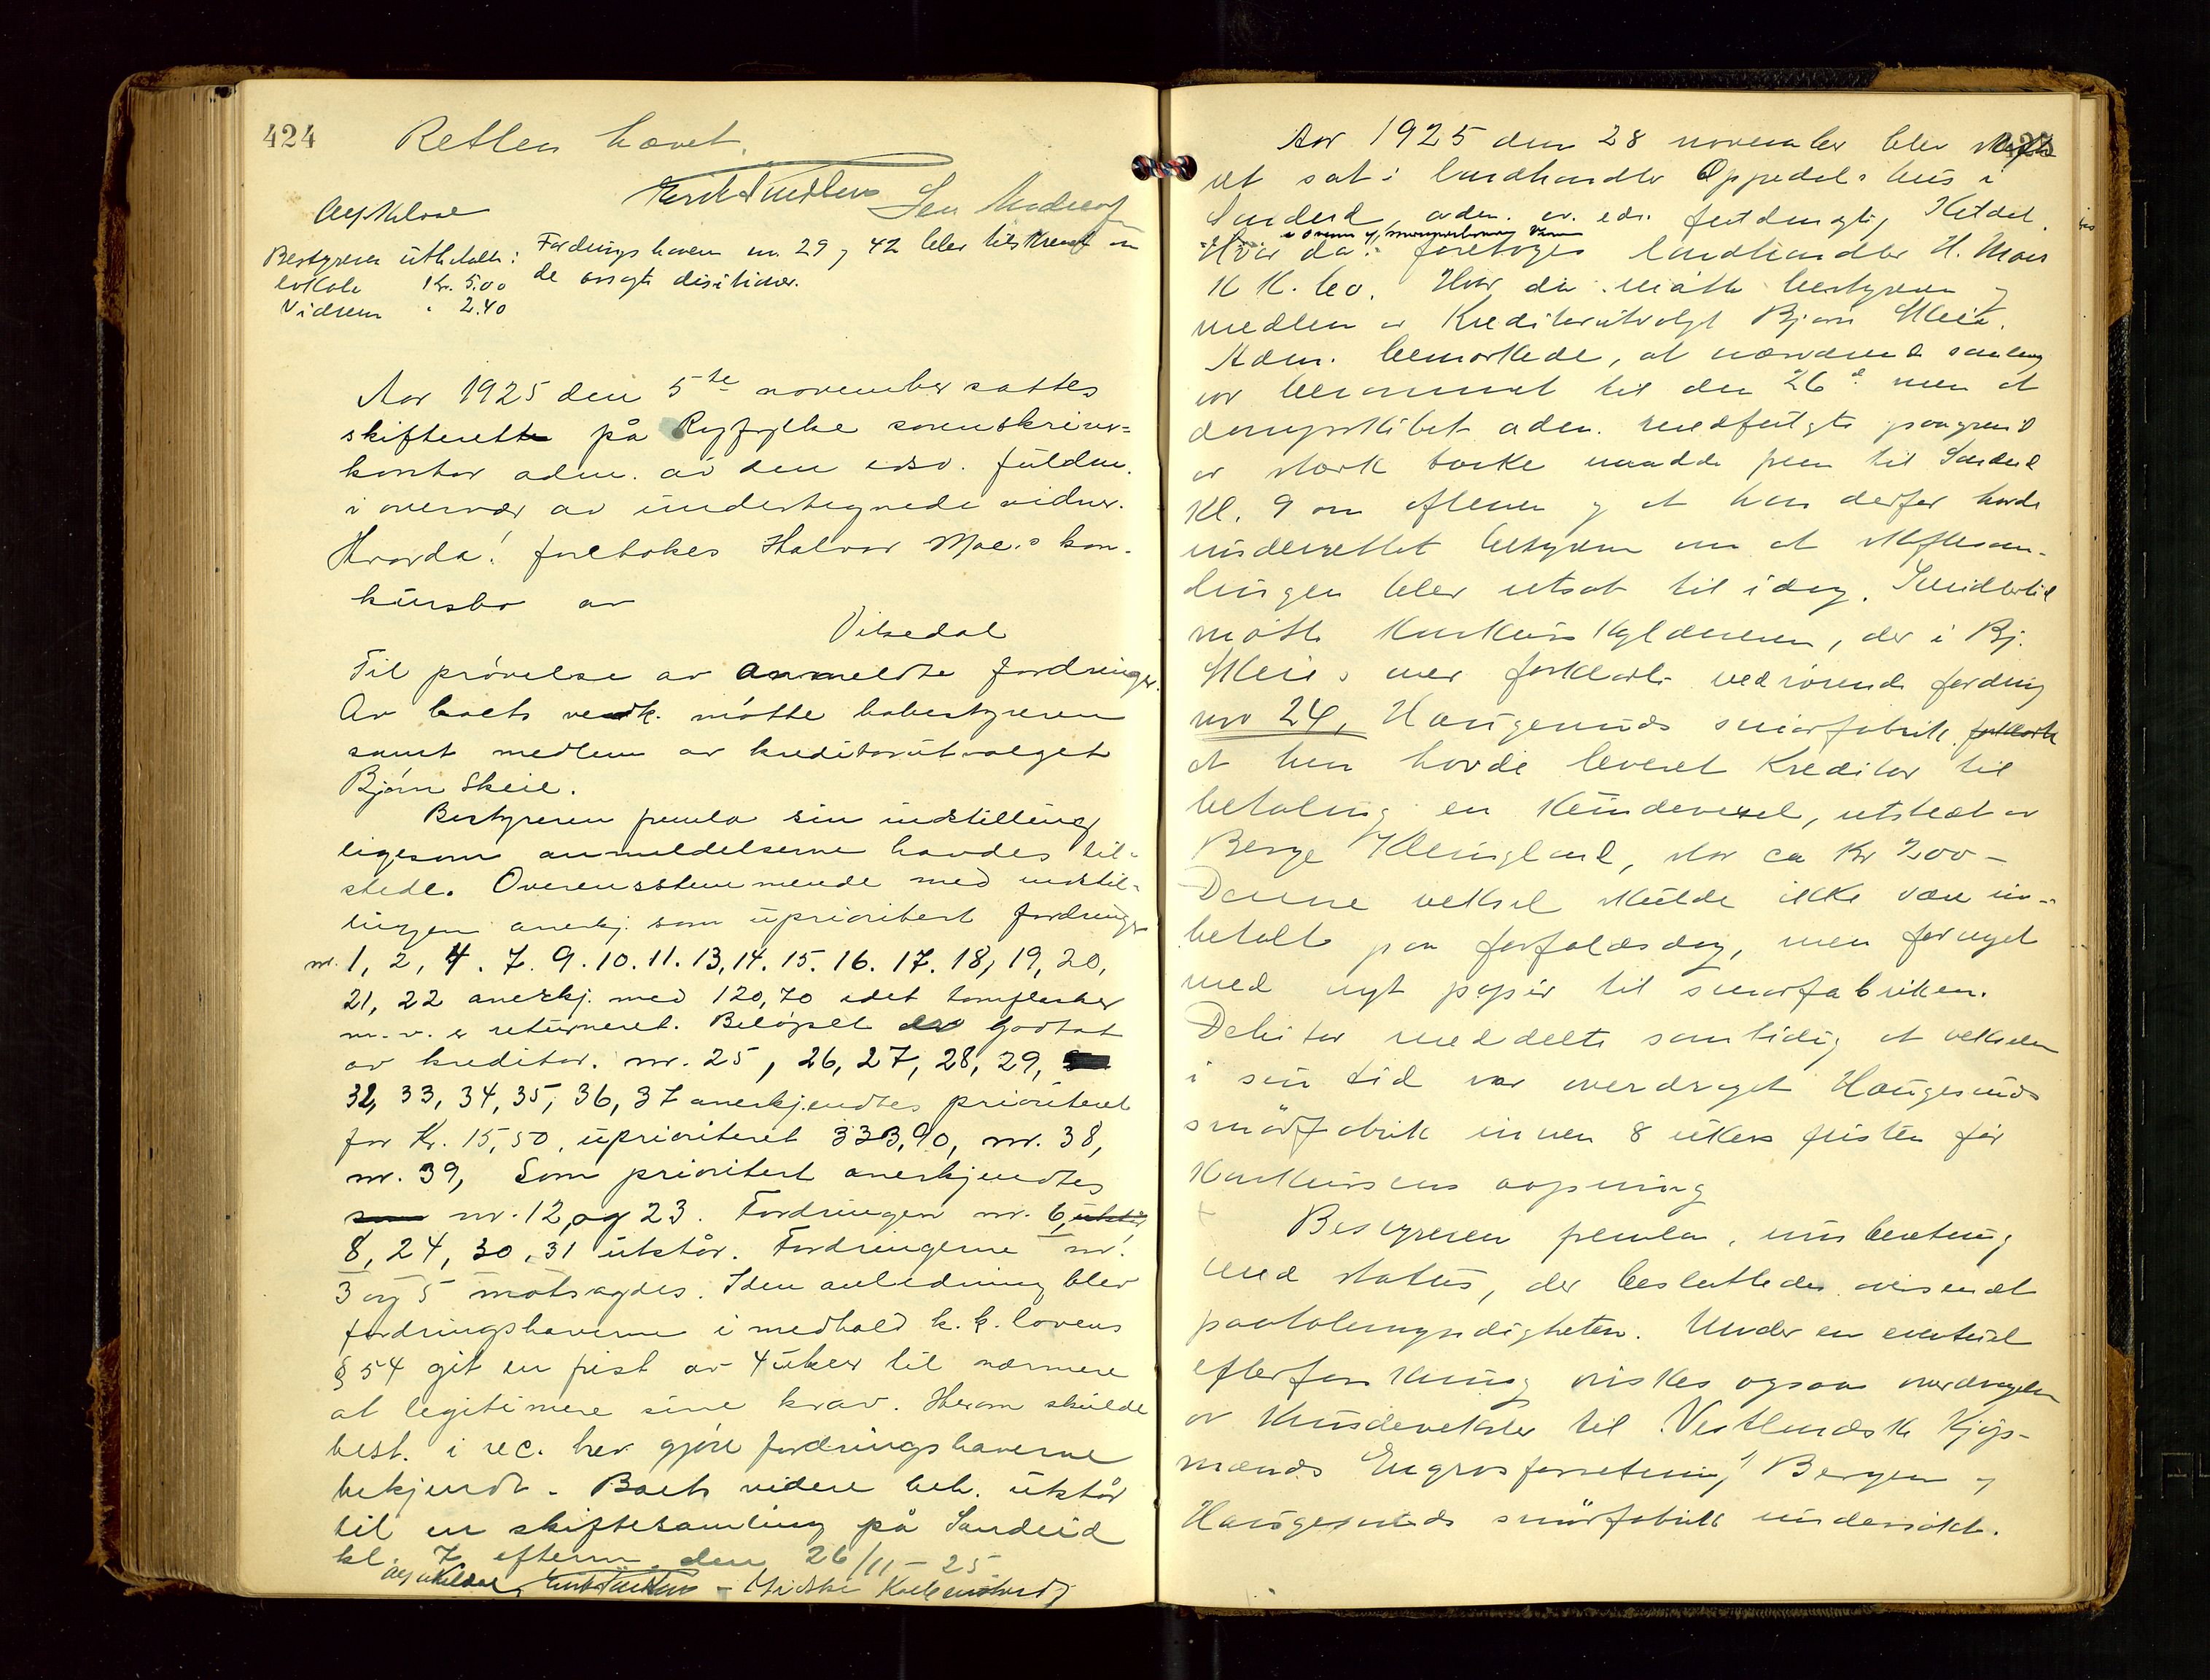 424
Retten hævet.
Alf Kolsae
Bestyreren utbetalte: Fordringshaveren nr. 29 og 42 blev tilskrevet om
lokale Kr. 5.00 de avsagte
Vidnem " 2.40
Aar 1925 den 5te november sattes
skifterett på Ryfylke sorenskriver-
kontor adm. av den edsv. fuldm.
i overvær av undertegnede vidner.
Hvorda! foretokes Halvor Moe's kon-
kursbo av
Vikedal
Til prøvelse av anmeldte fordringer.
Av boets vedk. møtte bobestyreren
samt medlem av kreditorutvalget
Bjørn Skeie.
Bestyreren fremla sin indstilling
ligesom anmeldelserne havdes til-
stede. Overensstemmende med indstil-
lingen anerkj. som uprioritert fordringer
nr. 1, 2, 4. 7. 9. 10. 11. 13, 14. 15. 16. 17. 18, 19, 20,
21, 22 anerkj. med 120,70 idet tomflasker
m.v. er returneret. Beløpet er godtat
av kreditor. nr. 25, 26, 27, 28, 29,
32, 33, 34, 35, 36, 37 anerkjendtes prioriteret
for Kr. 15,50, uprioriteret 333,90, nr. 38,
nr. 39, Som prioritert anerkjendtes
som nr. 12, og 23. Fordringen nr. 6, utstår,
8, 24, 30, 31 utstår. Fordringerne nr.
3 og 5 motsagdes. I den anledning blev
fordringshaverne i medhold k.k. lovens
§ 54 git en frist av 4 uker til nærmere
at legitimere sine krav. Herom skulde
best. i rec. brev gjøre fordringshaverne
bekjendt. Boets videre beh. utstår
til en skiftesamling på Sandeid
kl. 7 efterm. den 26/11 - 25
Aar 1925 den 28 november blev skifte
ret sat i landhandler Oppedals hus i
Sandeid, adm. av. eds. fuldmægtig Kildal
i overvær av
Hvorda: foretoges landhandler H. Moes
K K. bo. Hvor da møtte bestyreren og
medlem av Kreditorutvalget Bjørn Skeie.
Adm. bemerkede, at nærværende samling
var berammet til den 26de men at
dampskibet adm. medfulgte paagrund
av stærk taake naadde frem til Sandeid
Kl. 9 om aftenen og at han derfor havde
underrettet bestyreren om at skiftesam-
lingen blev utsat til idag. Imidlertid
møtte Konkursskyldneren, der i Bj.
Skeies nær forklarte vedrørende fordring
nr 24, Haugesunds smørfabrik forklarte
at han havde leveret Kreditor til
betaling en Kundeveksel, utstedt av
Berge Kleiveland, stor ca Kr 200-
Denne veksel skulde ikke være inn-
betalt paa forfaldsdag, men fornyet
med nyt papir til smørfabriken.
Debitor meddelte samtidig at vekselen
i sin tid var overdraget Haugesunds
smørfabrik innen 8 ukers fristen før
Konkursens aapning
Bestyreren fremla, innberetning
med status, der besluttedes oversendt
paatalemyndigheten. Under en eventuel
efterforskning ønskes ogsaa overdragelsen
av Kundeveksler til Vestlandske Kjøp-
mænds Engrosforretning, Bergen og
Haugesunds smørfabrik undersøkt.